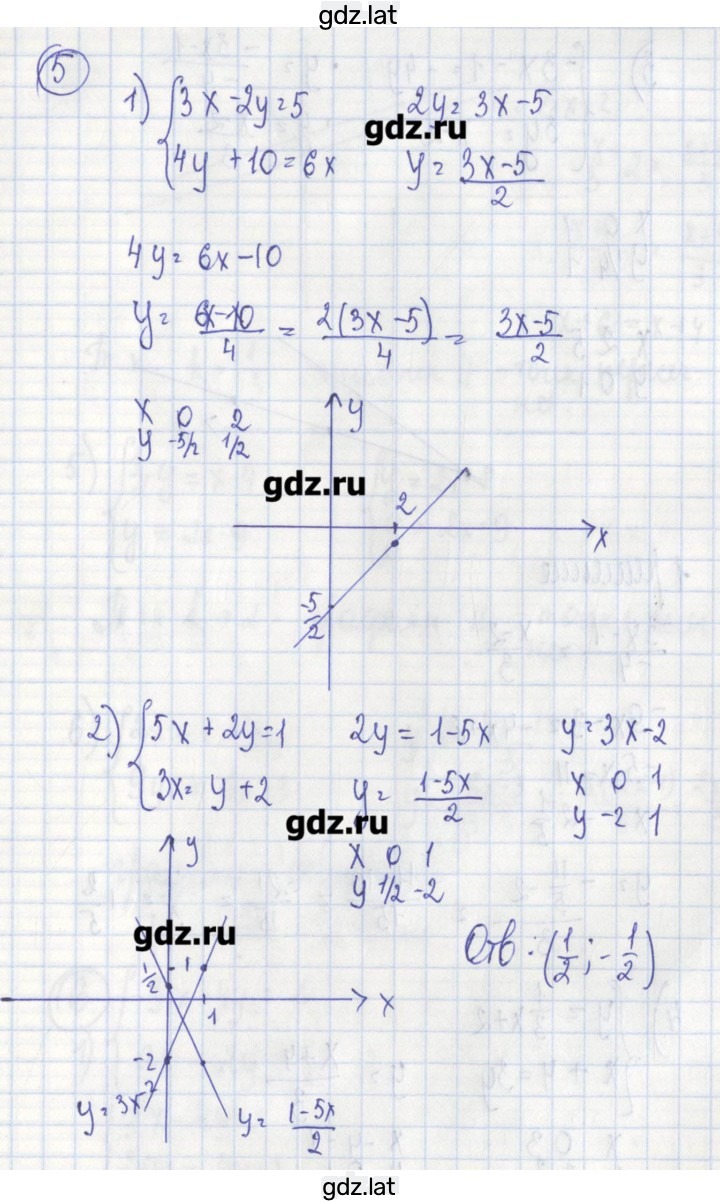 gdz.lat
5
1) {3x-2y=5    2y=3x-5
{4y+10=6x    y=3x-5/2
gdz.ru
4y=6x-10
y=6x-10/4=2(3x-5)/4=3x-5/2
x 0 2
y -5/2 1/2
gdz.ru
y
2
x
-5/2
2) {5x+2y=1    2y=1-5x    y=3x-2
{3x=y+2    y=1-5x/2    x 0 1
y -2 1
gdz.ru
x 0 1
y 1/2 -2
y
gdz.ru
Отв: (1/2; -1/2)
1/2
1
1
x
-2
y=3x-2
y=1-5x/2
gdz.lat